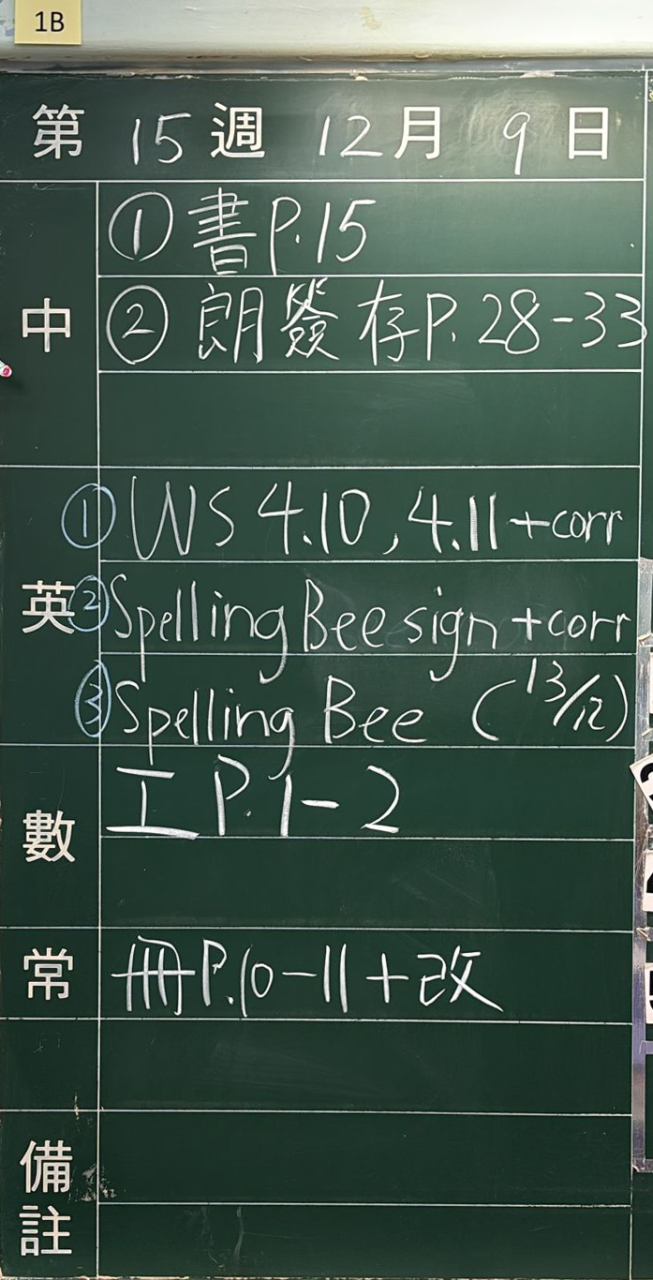 1B
第 15 週 12 月 9 日
中
① 書 P.15
② 朗簽存 P.28-33
英
① WS 4.10, 4.11 +corr
② Spelling Bee sign +corr
③ Spelling Bee (13/12)
數
工 P.1-2
常
冊 P.10-11 + 改
備註